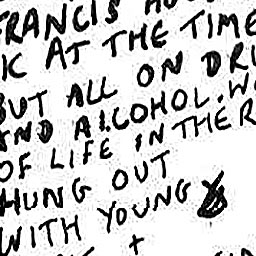 FRANCIS
K AT THE TIME
BUT ALL ON DR
AND ALCOHOL. W
OF LIFE IN THE R
HUNG OUT
WITH YOUNG